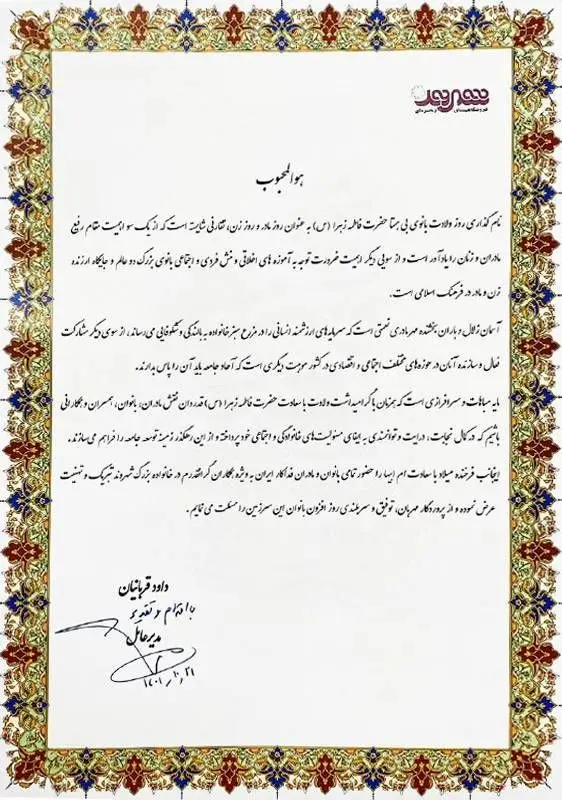 شهروند
فروشگاه‌های زنجیره‌ای
هوالمحبوب
نام گذاری روز ولادت بانوی بی همتا حضرت فاطمه زهرا (س) به عنوان روز مادر و روز زن، تقارنی شایسته است که از یک سو اهمیت مقام رفیع
مادران و زنان را یادآور است و از سویی دیگر اهمیت ضرورت توجه به آموزه های اخلاقی و منش فردی و اجتماعی بانوی بزرگ دو عالم و جایگاه ارزنده
زن و مادر در فرهنگ اسلامی است.
آسمان زلال و باران بخشنده مهر مادری نعمتی است که سرمایه‌های ارزشمند انسانی را در مزرع سبز خانواده به بالندگی و شکوفایی می‌رساند، از سوی دیگر مشارکت
فعال و سازنده آنان در حوزه‌های مختلف اجتماعی و اقتصادی در کشور موهبت دیگری است که آحاد جامعه باید آن را پاس بدارند.
مایه مباهات و سرافرازی است که همزمان با گرامیداشت ولادت با سعادت حضرت فاطمه زهرا (س) قدردان نقش مادران، بانوان، همسران و همکارانی
باشیم که در کمال نجابت، درایت و توانمندی به ایفای مسئولیت‌های خانوادگی و اجتماعی خود پرداخته و از این رهگذر زمینه توسعه جامعه را فراهم می‌سازند.
اینجانب فرخنده میلاد با سعادت ام ابیها را حضور تمامی بانوان و مادران فداکار ایران به ویژه همکاران گرانقدرم در خانواده بزرگ شهروند تبریک و تهنیت
عرض نموده و از پروردگار مهربان، توفیق و سربلندی روز افزون بانوان این سرزمین را مسئلت می نمایم.
داود قربانیان
با احترام و تقدیر
مدیرعامل
۱۴۰۱/۱۰/۲۱